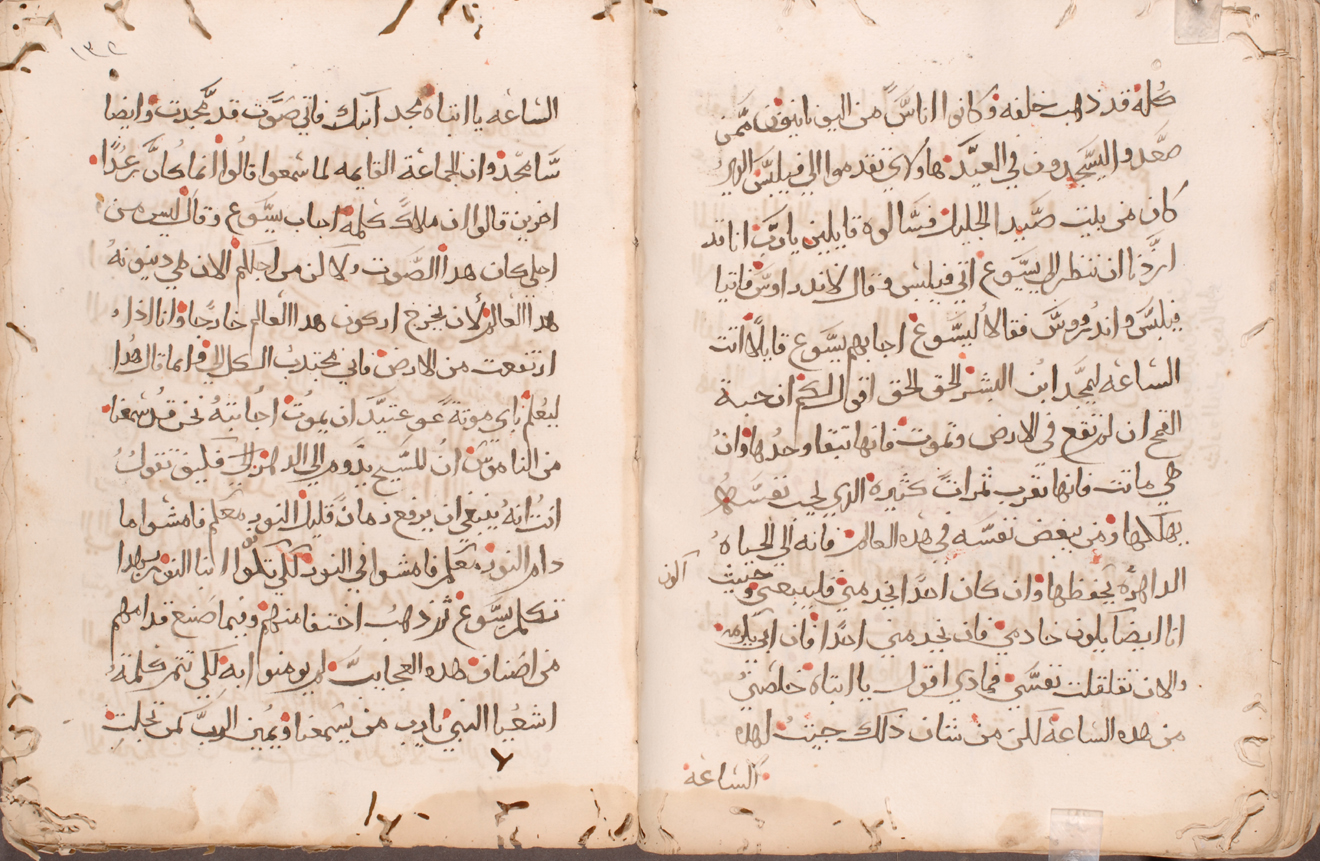 كله قد دهب خلفه وكانوا اناسًا من اليونانيون ممن
صعدوا ليسجدون في العيد هاولاي تقدموا الي فيلبس الدي
كان من بيت صيدا الجليل فسالوه قايلين يا رب انا قد
اردنا ان ننظر الي يسوع اتي فيلبس وقال لاندراوس فاتيا
فيلبس واندروس فقالا ليسوع اجابهم يسوع قايلًا اتت
الساعه ليمجد ابن البشر الحق الحق اقول لكم ان حبة
القمح ان لم تقع في الارض وتموت فانها تبقا وحدها وان
هي ماتت فانها تقرب ثمرات كثيره الدي يحب نفسه
يهلكها ومن يبغض نفسه في هده العالم فانه الي الحياه
الداهره يحفظها وان كان احدًا يخدمني فليتبعني وحيث
اكون
انا ايضا يكون خادمي فان يخدمني احدًا فان ابي يكرمه
والان تقلقلت نفسي فمادي اقول يا ابتاه خلصني
من هده الساعة لكن من شان دلك جيت لهده
الساعه
١٣٤
الساعه يا ابتاه مجد ابنك فاتي صوت قد مجدت وايضا
سامجد وان الجماعة القايمه لما سمعوا قالوا انما كان رعدًا
اخرين قالوا ان ملاك كلمه اجاب يسوع وقال ليس من
اجلي كان هدا الصوت ولاكن من اجلكم الان هي دينونه
هدا العالم الان يخرج اركون هدا العالم خارجًا وانا اذا
ارتفعت من الارض فاني مجتدب الكل الي وانما قال هدا
ليعلم باي موتة هو عتيد ان يموت اجابته نحن قد سمعنا
من الناموس ان المسيح يدوم الي الدهر فكيف تقول
انت انه ينبغي ان يرفع زمانًا قليل النور معكم فامشوا ما
دام النور معكم فامشوا في النور لكي تكونوا ابنا النور بهدا
تكلم يسوع ثم دهب اختفا منهم وفيما صنع قدامهم
من اصناف هده العجايب لم يومنوا به لكي تتم كلمة
اشعيا النبي يا رب من يسمعنا ويمين الرب لمن تجلت